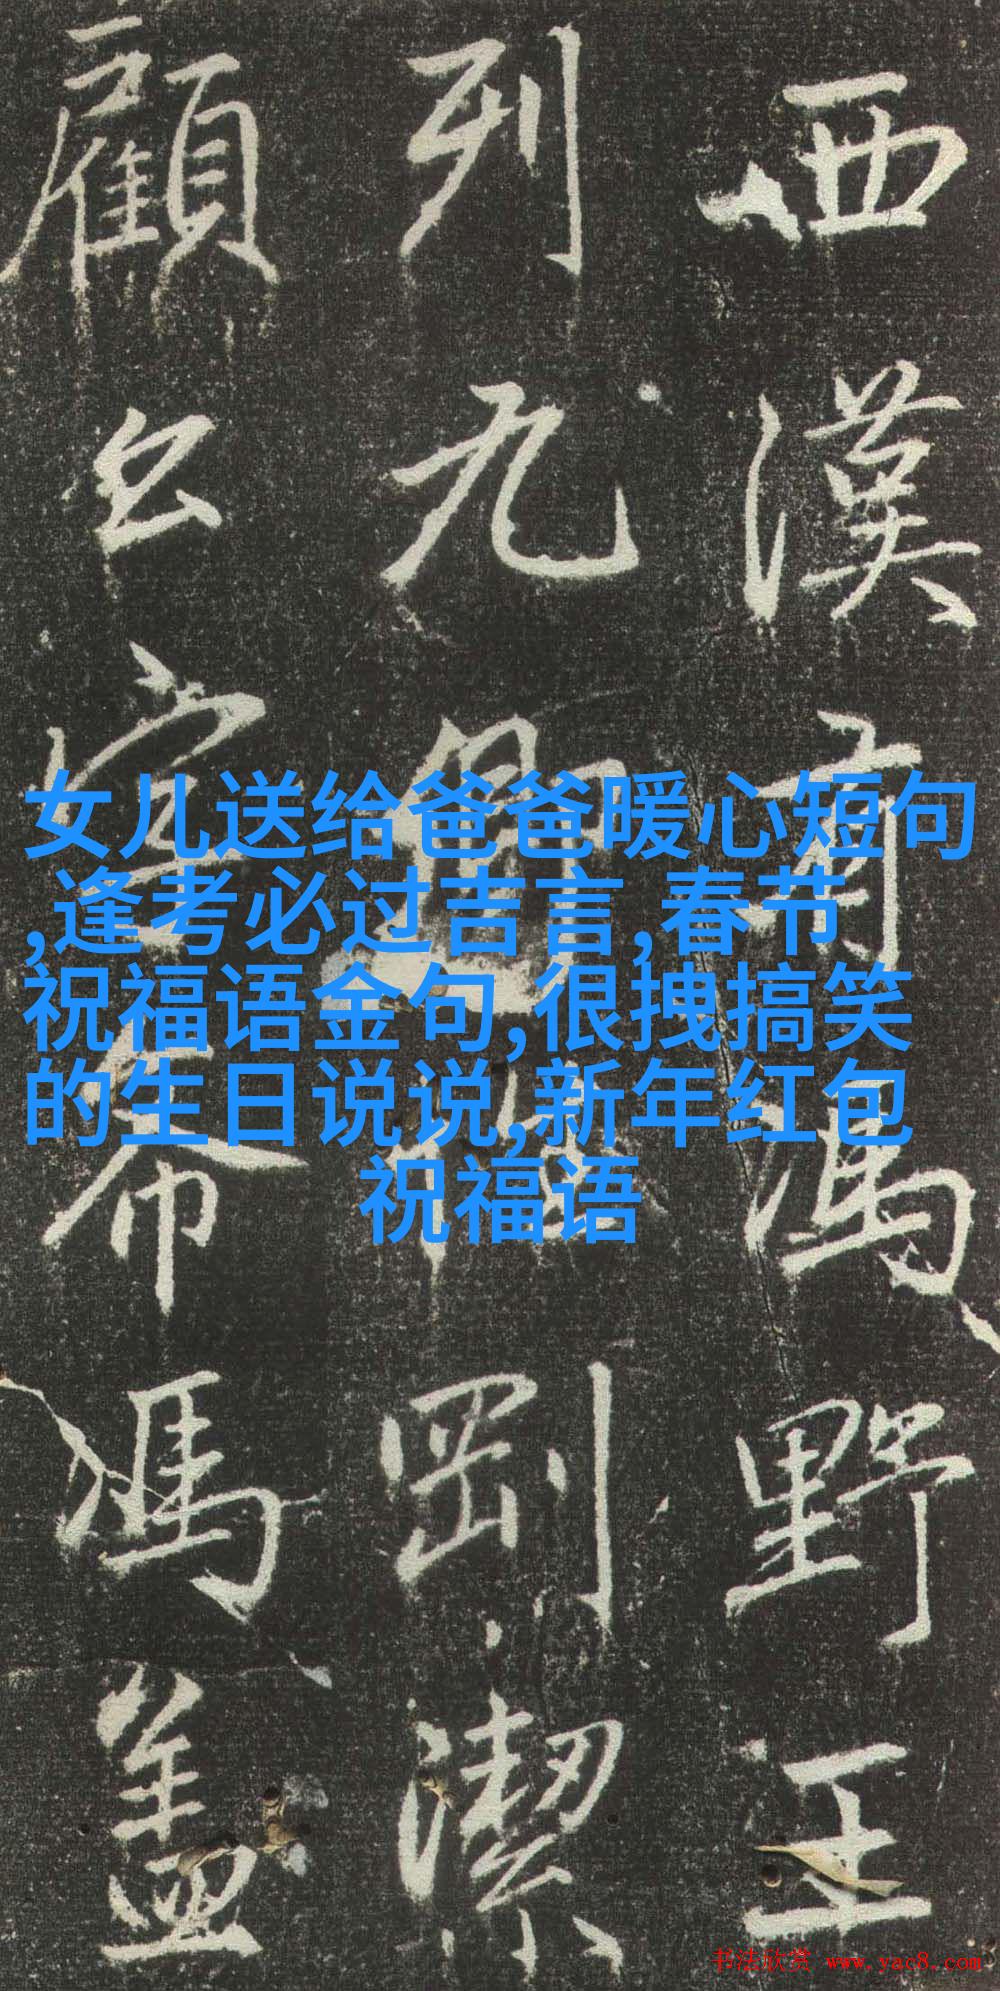 西漢有馮野王
列九剛潔
顧公希馮盖
女儿送给爸爸暖心短句
,逢考必过吉言,春节
祝福语金句,很拽搞笑
的生日说说,新年红包
祝福语
书法欣赏 www.yac8.com